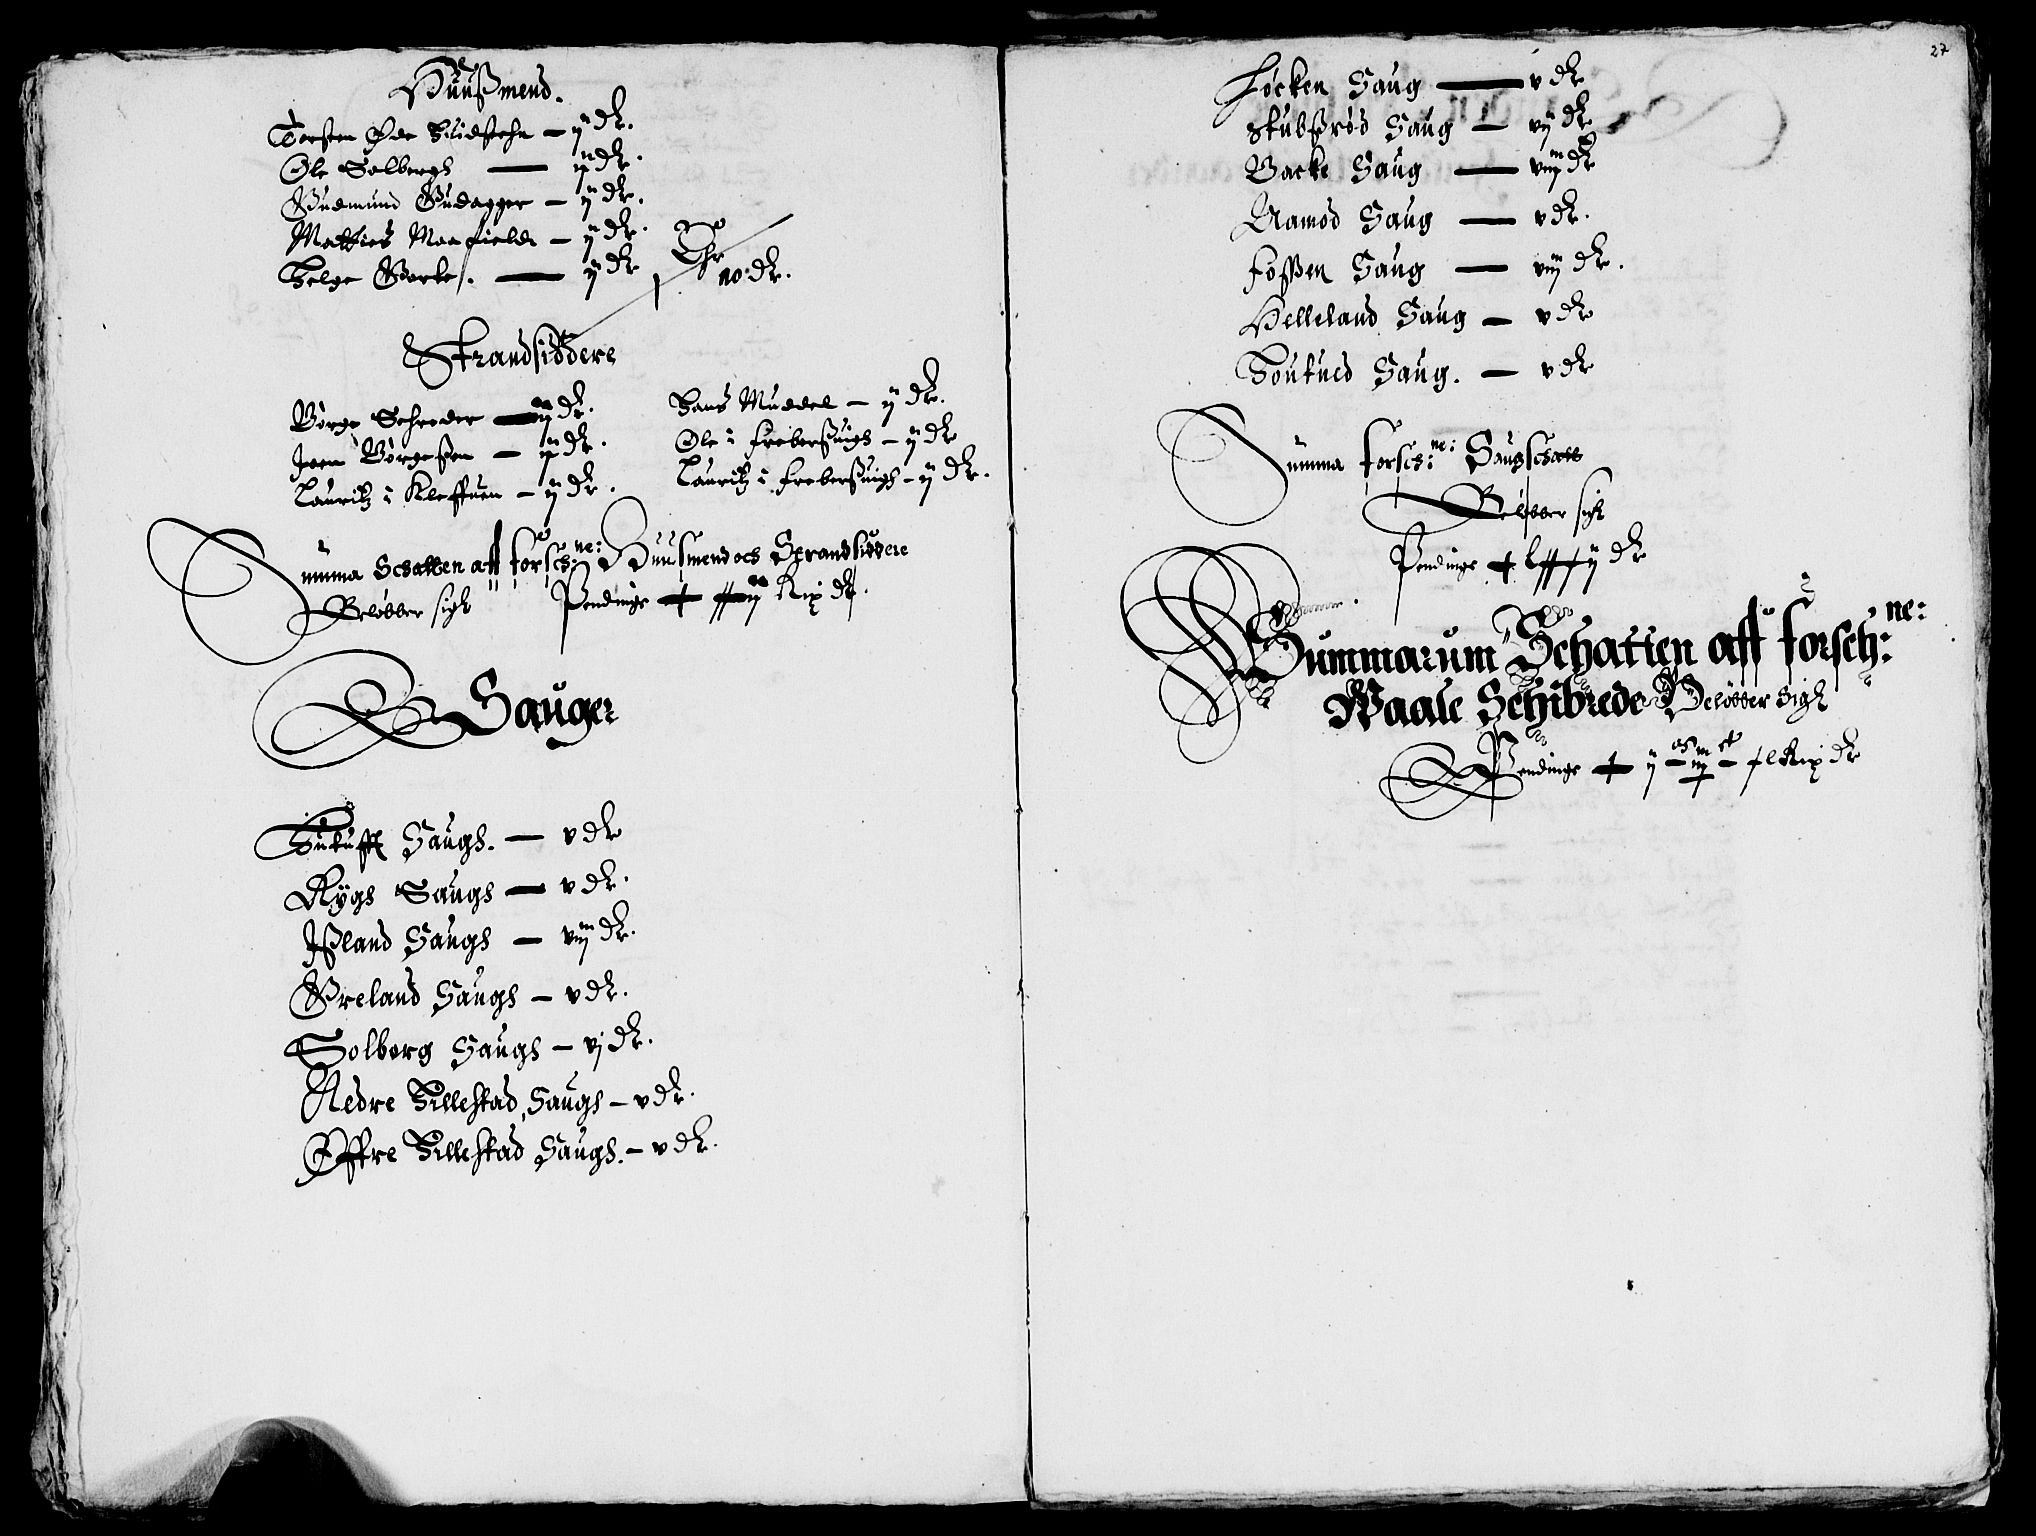 Huußmend.
Torsten Øde — ij dr.
Ole Solbergh — ij dr.
Gudmund Gudagger — ij dr.
Matties Moafieldt — ij dr.
Helge Backe. — ij dr
Thr
10 dr.
Strandsiddere
Børge Schreder — ij dr.
Joen Børgeßen — ij dr.
Lauritz i Kleffuen — ij dr.
Hans Muddel — ij dr.
Ole i Freberßuigh — ij dr
Lauritz i Freberßuigh — ij dr.
Summa Schatten aff forsch: ne: Huusmend och Strandsiddere
Beløbber sigh Pendinge dr.
Sauger
Saugh. — v dr
Rygh Saugh — v dr.
Jßland Saugh — viij dr.
Vreland Saugh — v dr.
Solberg Saugh — vj dr.
Nedre Tillestad Saugh — v dr.
Øffre Tillestad Saugh. — v dr.
27
Føcken Saug — v dr
Stubßrød Saug — vij dr
Backe Saug — viij dr
Ramød Saug — v dr.
Foßen Saug — viij dr.
Helleland Saug — v dr
Saug. — v dr
Summa forsch: ne: Saugschatt
Beløbber sigh
Pendinge dr
Summarum Schatten aff forsch: ne:
Waale Schibrede Beløbber sigh
Pendinge dr